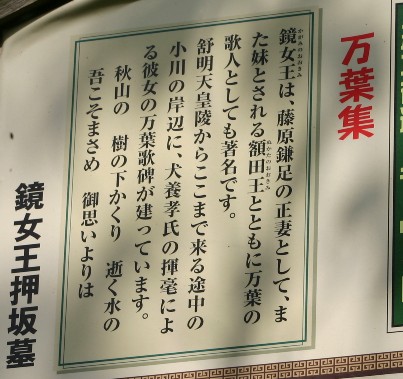 万葉集
鏡女王は、藤原鎌足の正妻として、ま
かがみのおおきみ
た妹とされる額田王とともに万葉の
ぬかたのおおきみ
歌人としても著名です。
舒明天皇陵からここまで来る途中の
小川の岸辺に、犬養孝氏の揮毫によ
る彼女の万葉歌碑が建っています。
秋山の 樹の下かくり 逝く水の
吾こそまさめ 御思いよりは
鏡女王押坂墓